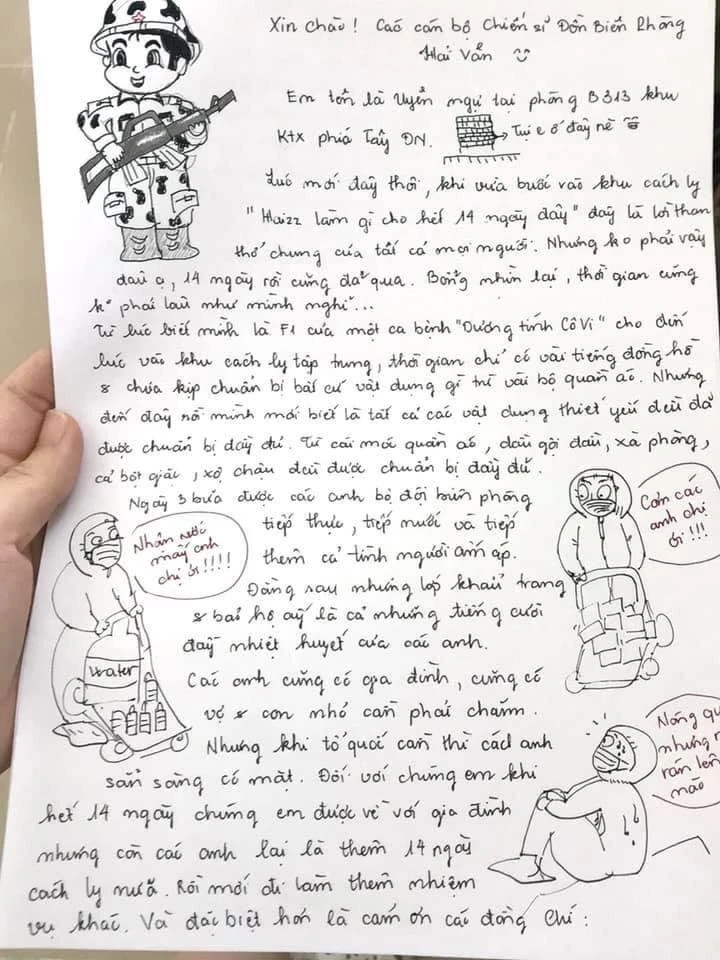 Xin chào! Các cán bộ Chiến sĩ Đồn Biên Phòng
Hải Vân
Em tên là Uyển ngụ tại phòng B313 khu
Ktx phía Tây ĐN.
Tụi e ở đây nè
Lúc mới đây thôi, khi vừa bước vào khu cách ly
"Haizz làm gì cho hết 14 ngày đây" đây là lời than
thở chung của tất cả mọi người. Nhưng ko phải vậy
đâu ạ, 14 ngày rồi cũng đã qua. Bỗng nhìn lại, thời gian cũng
k phải lâu như mình nghĩ...
Từ lúc biết mình là F1 của một ca bệnh "Dương tính CôVi" cho đến
lúc vào khu cách ly tập trung, thời gian chỉ có vài tiếng đồng hồ
& chưa kịp chuẩn bị bất cứ vật dụng gì trừ vài bộ quần áo. Nhưng
đến đây rồi mình mới biết là tất cả các vật dụng thiết yếu đều đã
được chuẩn bị đầy đủ. Từ cái móc quần áo, dầu gội đầu, xà phòng,
cả bột giặt, xô chậu đều được chuẩn bị đầy đủ.
Ngày 3 bữa được các anh bộ đội biên phòng
tiếp thực, tiếp nước và tiếp
thêm cả tình người ấm áp.
Nhận nước
này anh
chị ơi!!!!
Cơm các
anh chị
ơi!!!
Đằng sau những lớp khẩu trang
& bảo hộ ấy là cả những tiếng cười
đầy nhiệt huyết của các anh.
Water
Các anh cũng có gia đình, cũng có
vợ & con nhỏ cần phải chăm.
Nhưng khi tổ quốc cần thì các anh
sẵn sàng có mặt. Đối với chúng em khi
hết 14 ngày chúng em được về với gia đình
nhưng còn các anh lại là thêm 14 ngày
cách ly nữa. Rồi mới đi làm thêm nhiệm
vụ khác. Và đặc biệt hơn là cám ơn các đồng chí:
Nóng qu
nhưng
rán lên
nào